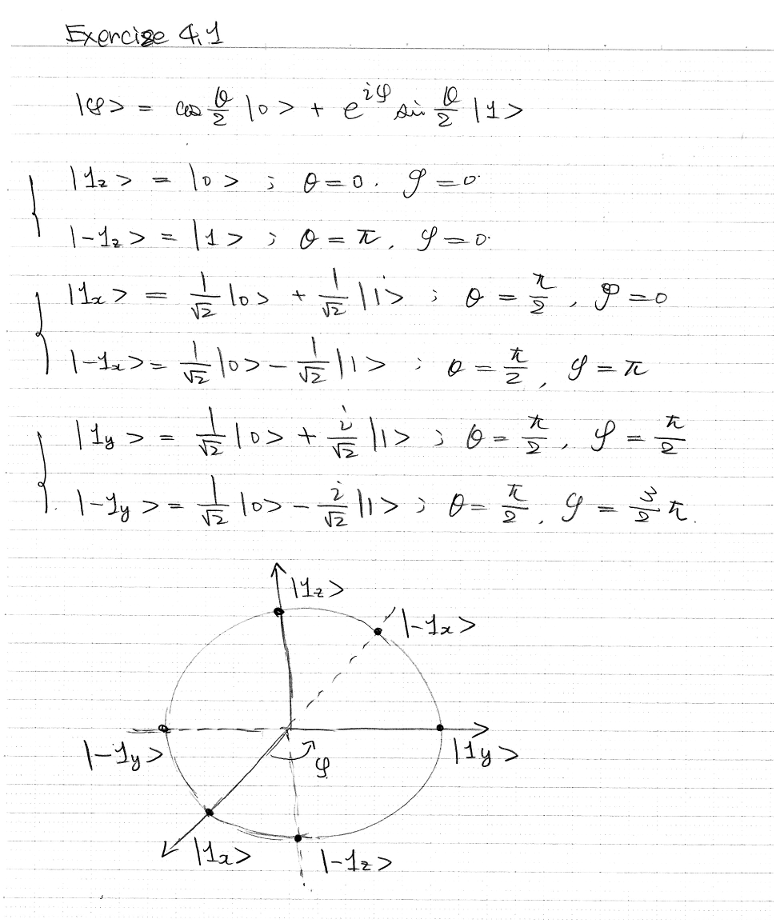 Exercise 4.1
|φ> = cos θ/2 |0> + e^{iφ} sin θ/2 |1>
|1z> = |0> ; θ=0. φ=0.
|-1z> = |1> ; θ=π, φ=0.
|1x> = 1/√2 |0> + 1/√2 |1> ; θ = π/2, φ=0
|-1x> = 1/√2 |0> - 1/√2 |1> ; θ = π/2, φ=π
|1y> = 1/√2 |0> + i/√2 |1> ; θ = π/2, φ = π/2
|-1y> = 1/√2 |0> - i/√2 |1> ; θ = π/2, φ = 3/2 π.
|1z>
|-1x>
|-1y>
φ
|1y>
|1x>
|-1z>